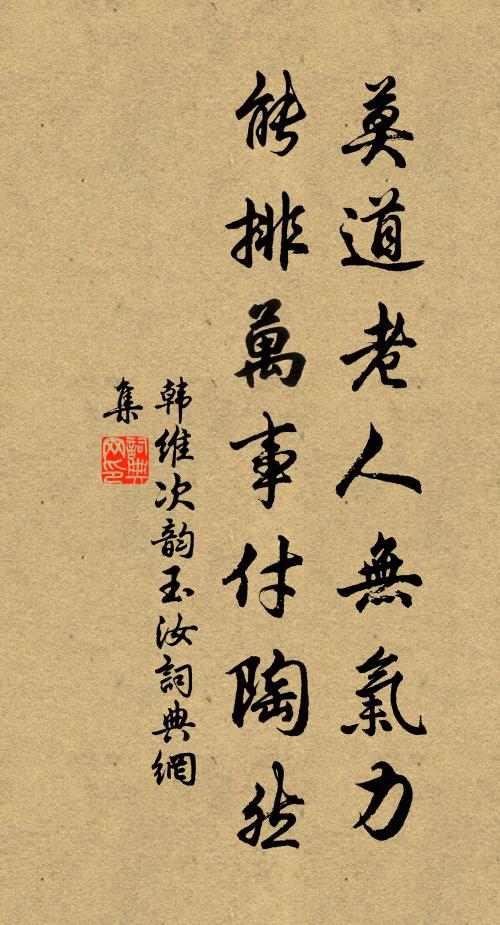 莫道老人無氣力
能排萬事付陶然
韩維次韵玉汝詞典網
集
詞典网印